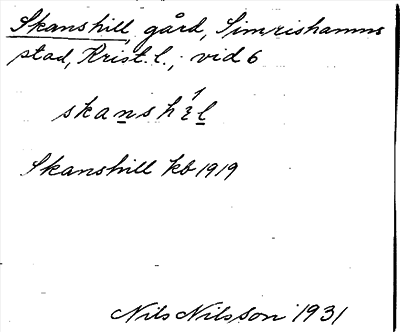 Skanshill, gård, Simrishamns
stad, Krist. l., vid 6
Skanshill kb 1919
Nils Nilsson 1931